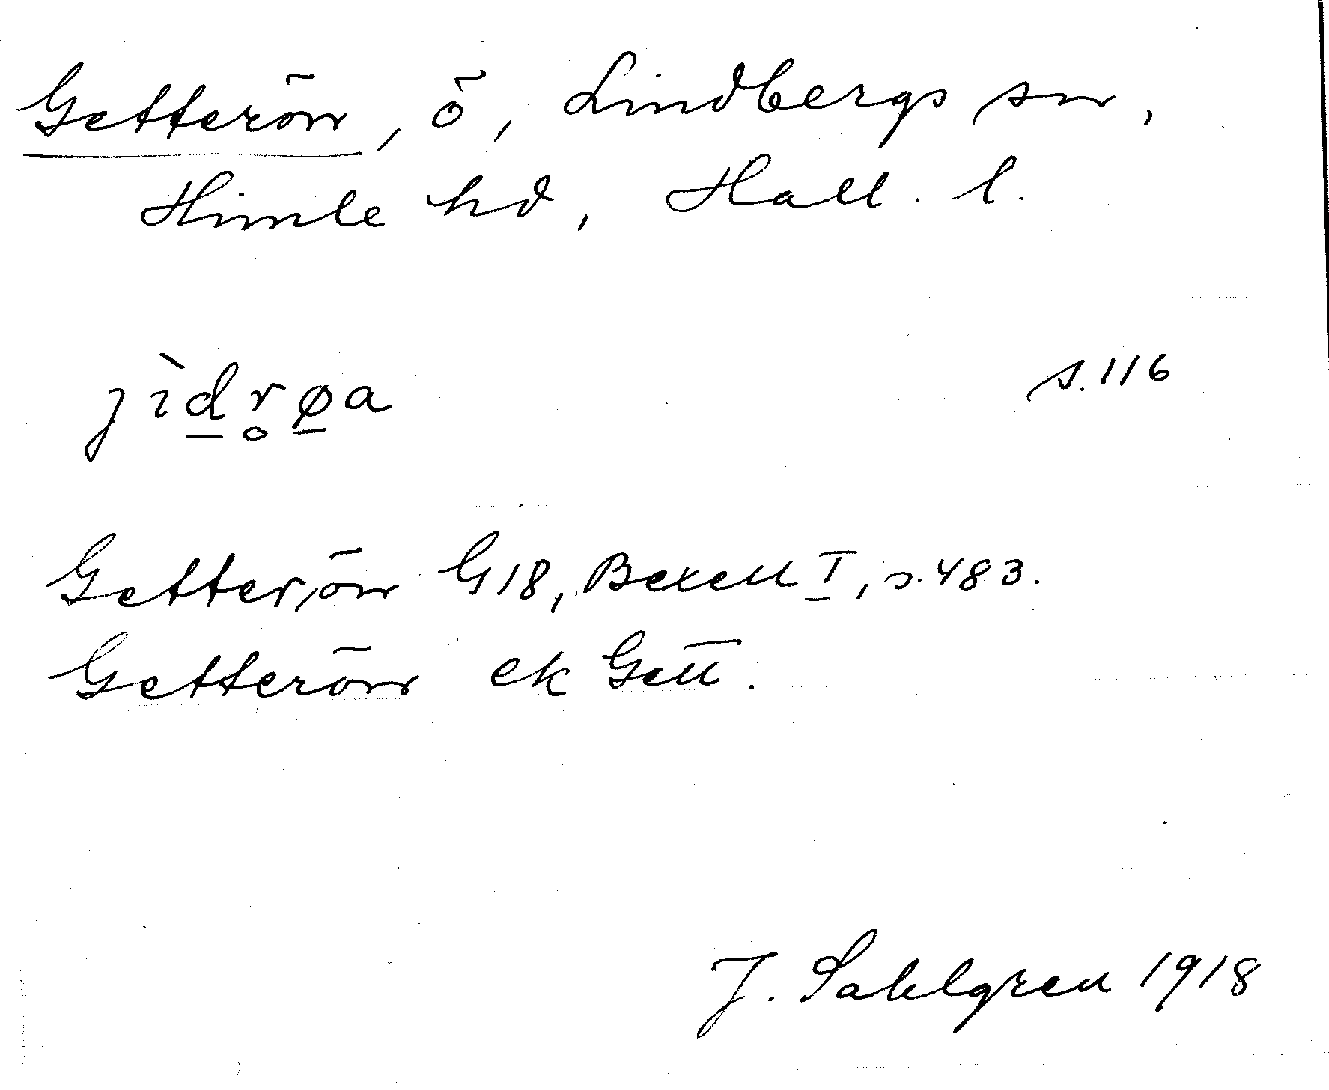 Getterön, ö, Lindbergs sn,
Himle hd, Hall. l.
jìd̲r̥ø̲a s. 116
Getter,ön G18, Bexell I, s. 483.
Getterön ek Gett.
J. Sahlgren 1918